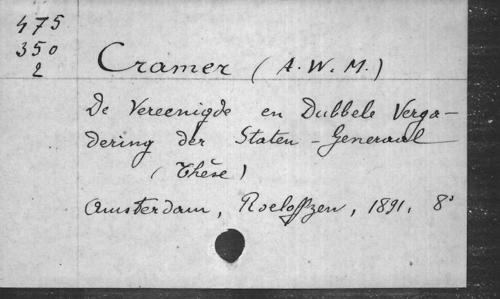 475
350
2
Cramer (A. W. M.)
De Vereenigde en Dubbele Verga-
dering der Staten-Generaal
(Thèse)
Amsterdam, Roeloffzen, 1891, 8º